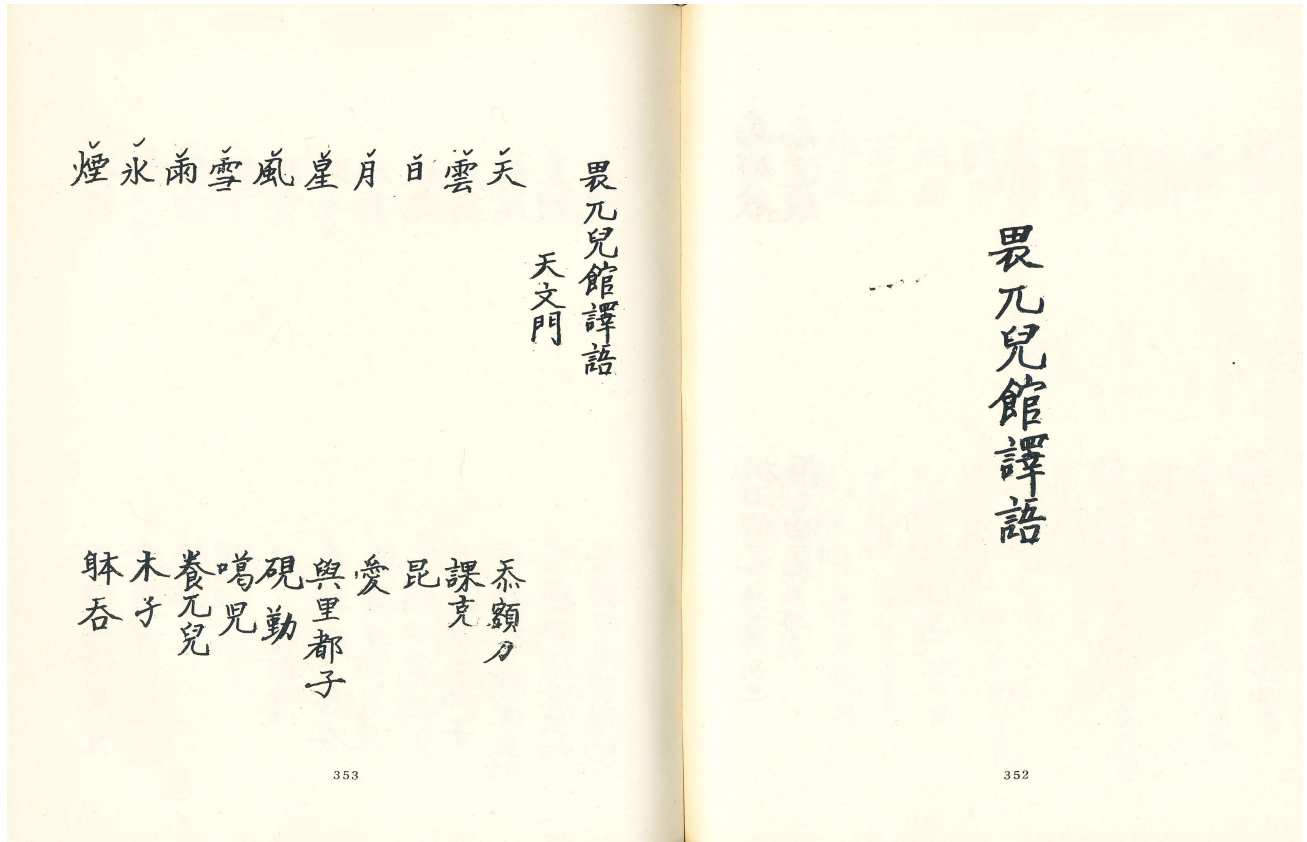 畏兀兒館譯語
352
畏兀兒館譯語
天文門
天
忝額力
雲
課克
日
昆
月
愛
星
與里都子
風
硯勤
雪
噶兒
雨
養兀兒
氷
木子
煙
躰吞
353